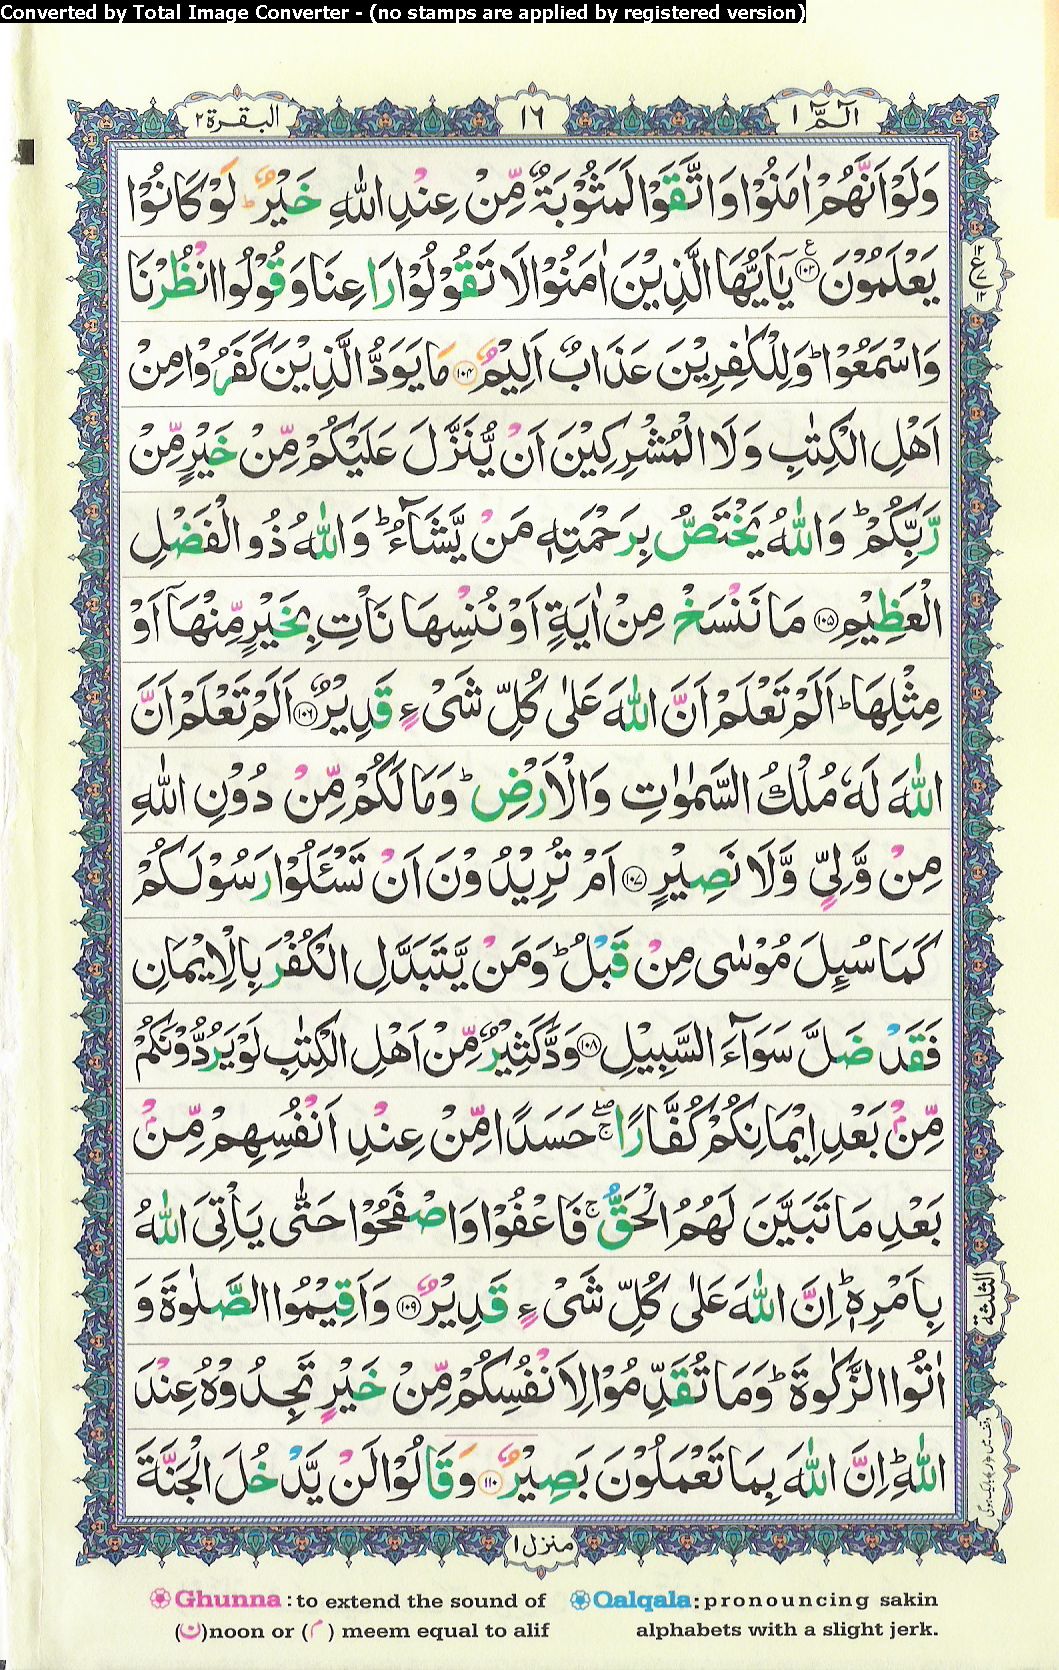 Converted by Total Image Converter - (no stamps are applied by registered version)
الٓمّٓ ١
١٦
البقرة ٢
وَلَوْ اَنَّهُمْ اٰمَنُوْا وَاتَّقَوْا لَمَثُوْبَةٌ مِّنْ عِنْدِ اللّٰهِ خَيْرٌ ؕ لَوْ كَانُوْا
يَعْلَمُوْنَ ﴿۱۰۳﴾ يٰۤاَيُّهَا الَّذِيْنَ اٰمَنُوْا لَا تَقُوْلُوْا رَاعِنَا وَقُوْلُوا انْظُرْنَا
وَاسْمَعُوْا ؕ وَلِلْكٰفِرِيْنَ عَذَابٌ اَلِيْمٌ ﴿۱۰۴﴾ مَا يَوَدُّ الَّذِيْنَ كَفَرُوْا مِنْ
اَهْلِ الْكِتٰبِ وَلَا الْمُشْرِكِيْنَ اَنْ يُّنَزَّلَ عَلَيْكُمْ مِّنْ خَيْرٍ مِّنْ
رَّبِّكُمْ ؕ وَاللّٰهُ يَخْتَصُّ بِرَحْمَتِهٖ مَنْ يَّشَآءُ ؕ وَاللّٰهُ ذُو الْفَضْلِ
الْعَظِيْمِ ﴿۱۰۵﴾ مَا نَنْسَخْ مِنْ اٰيَةٍ اَوْ نُنْسِهَا نَاْتِ بِخَيْرٍ مِّنْهَاۤ اَوْ
مِثْلِهَا ؕ اَلَمْ تَعْلَمْ اَنَّ اللّٰهَ عَلٰى كُلِّ شَىْءٍ قَدِيْرٌ ﴿۱۰۶﴾ اَلَمْ تَعْلَمْ اَنَّ
اللّٰهَ لَهٗ مُلْكُ السَّمٰوٰتِ وَالْاَرْضِ ؕ وَمَا لَكُمْ مِّنْ دُوْنِ اللّٰهِ
مِنْ وَّلِيٍّ وَّلَا نَصِيْرٍ ﴿۱۰۷﴾ اَمْ تُرِيْدُوْنَ اَنْ تَسْـَٔلُوْا رَسُوْلَكُمْ
كَمَا سُىِٕلَ مُوْسٰى مِنْ قَبْلُ ؕ وَمَنْ يَّتَبَدَّلِ الْكُفْرَ بِالْاِيْمَانِ
فَقَدْ ضَلَّ سَوَآءَ السَّبِيْلِ ﴿۱۰۸﴾ وَدَّ كَثِيْرٌ مِّنْ اَهْلِ الْكِتٰبِ لَوْ يَرُدُّوْنَكُمْ
مِّنْۢ بَعْدِ اِيْمَانِكُمْ كُفَّارًا ۖۚ حَسَدًا مِّنْ عِنْدِ اَنْفُسِهِمْ مِّنْۢ
بَعْدِ مَا تَبَيَّنَ لَهُمُ الْحَقُّ ۚ فَاعْفُوْا وَاصْفَحُوْا حَتّٰى يَاْتِىَ اللّٰهُ
بِاَمْرِهٖ ؕ اِنَّ اللّٰهَ عَلٰى كُلِّ شَىْءٍ قَدِيْرٌ ﴿۱۰۹﴾ وَاَقِيْمُوا الصَّلٰوةَ وَ
اٰتُوا الزَّكٰوةَ ؕ وَمَا تُقَدِّمُوْا لِاَنْفُسِكُمْ مِّنْ خَيْرٍ تَجِدُوْهُ عِنْدَ
اللّٰهِ ؕ اِنَّ اللّٰهَ بِمَا تَعْمَلُوْنَ بَصِيْرٌ ﴿۱۱۰﴾ وَقَالُوْا لَنْ يَّدْخُلَ الْجَنَّةَ
الثلثة
منزل ١
Ghunna : to extend the sound of (ن)noon or (م) meem equal to alif
Qalqala: pronouncing sakin alphabets with a slight jerk.